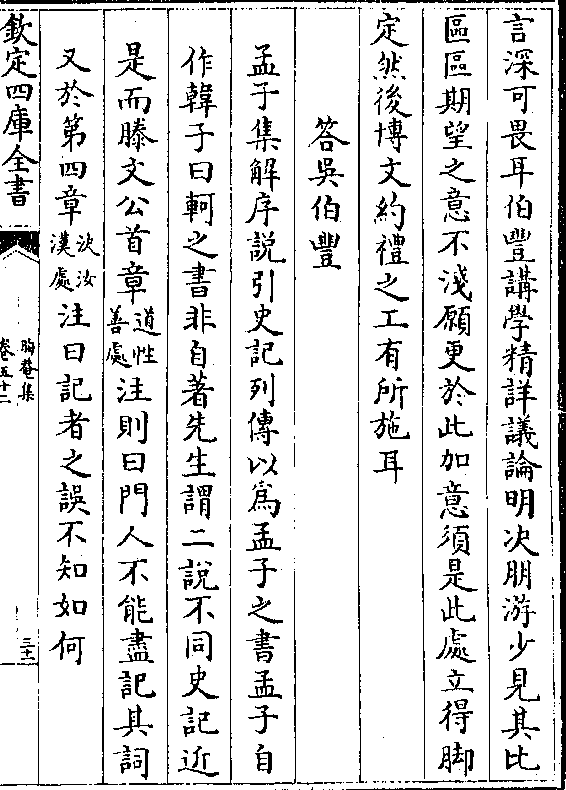 言深可畏耳伯豐講學精詳議論明決朋游少見其比
區區期望之意不淺願更於此加意須是此處立得脚
定然後博文約禮之工有所施耳
答吳伯豐
孟子集解序說引史記列傳以為孟子之書孟子自
作韓子曰軻之書非自著先生謂二說不同史記近
是而滕文公首章道性善處注則曰門人不能盡記其詞
又於第四章決汝漢處注曰記者之誤不知如何
欽定四庫全書
晦菴集
卷五十二
三十二